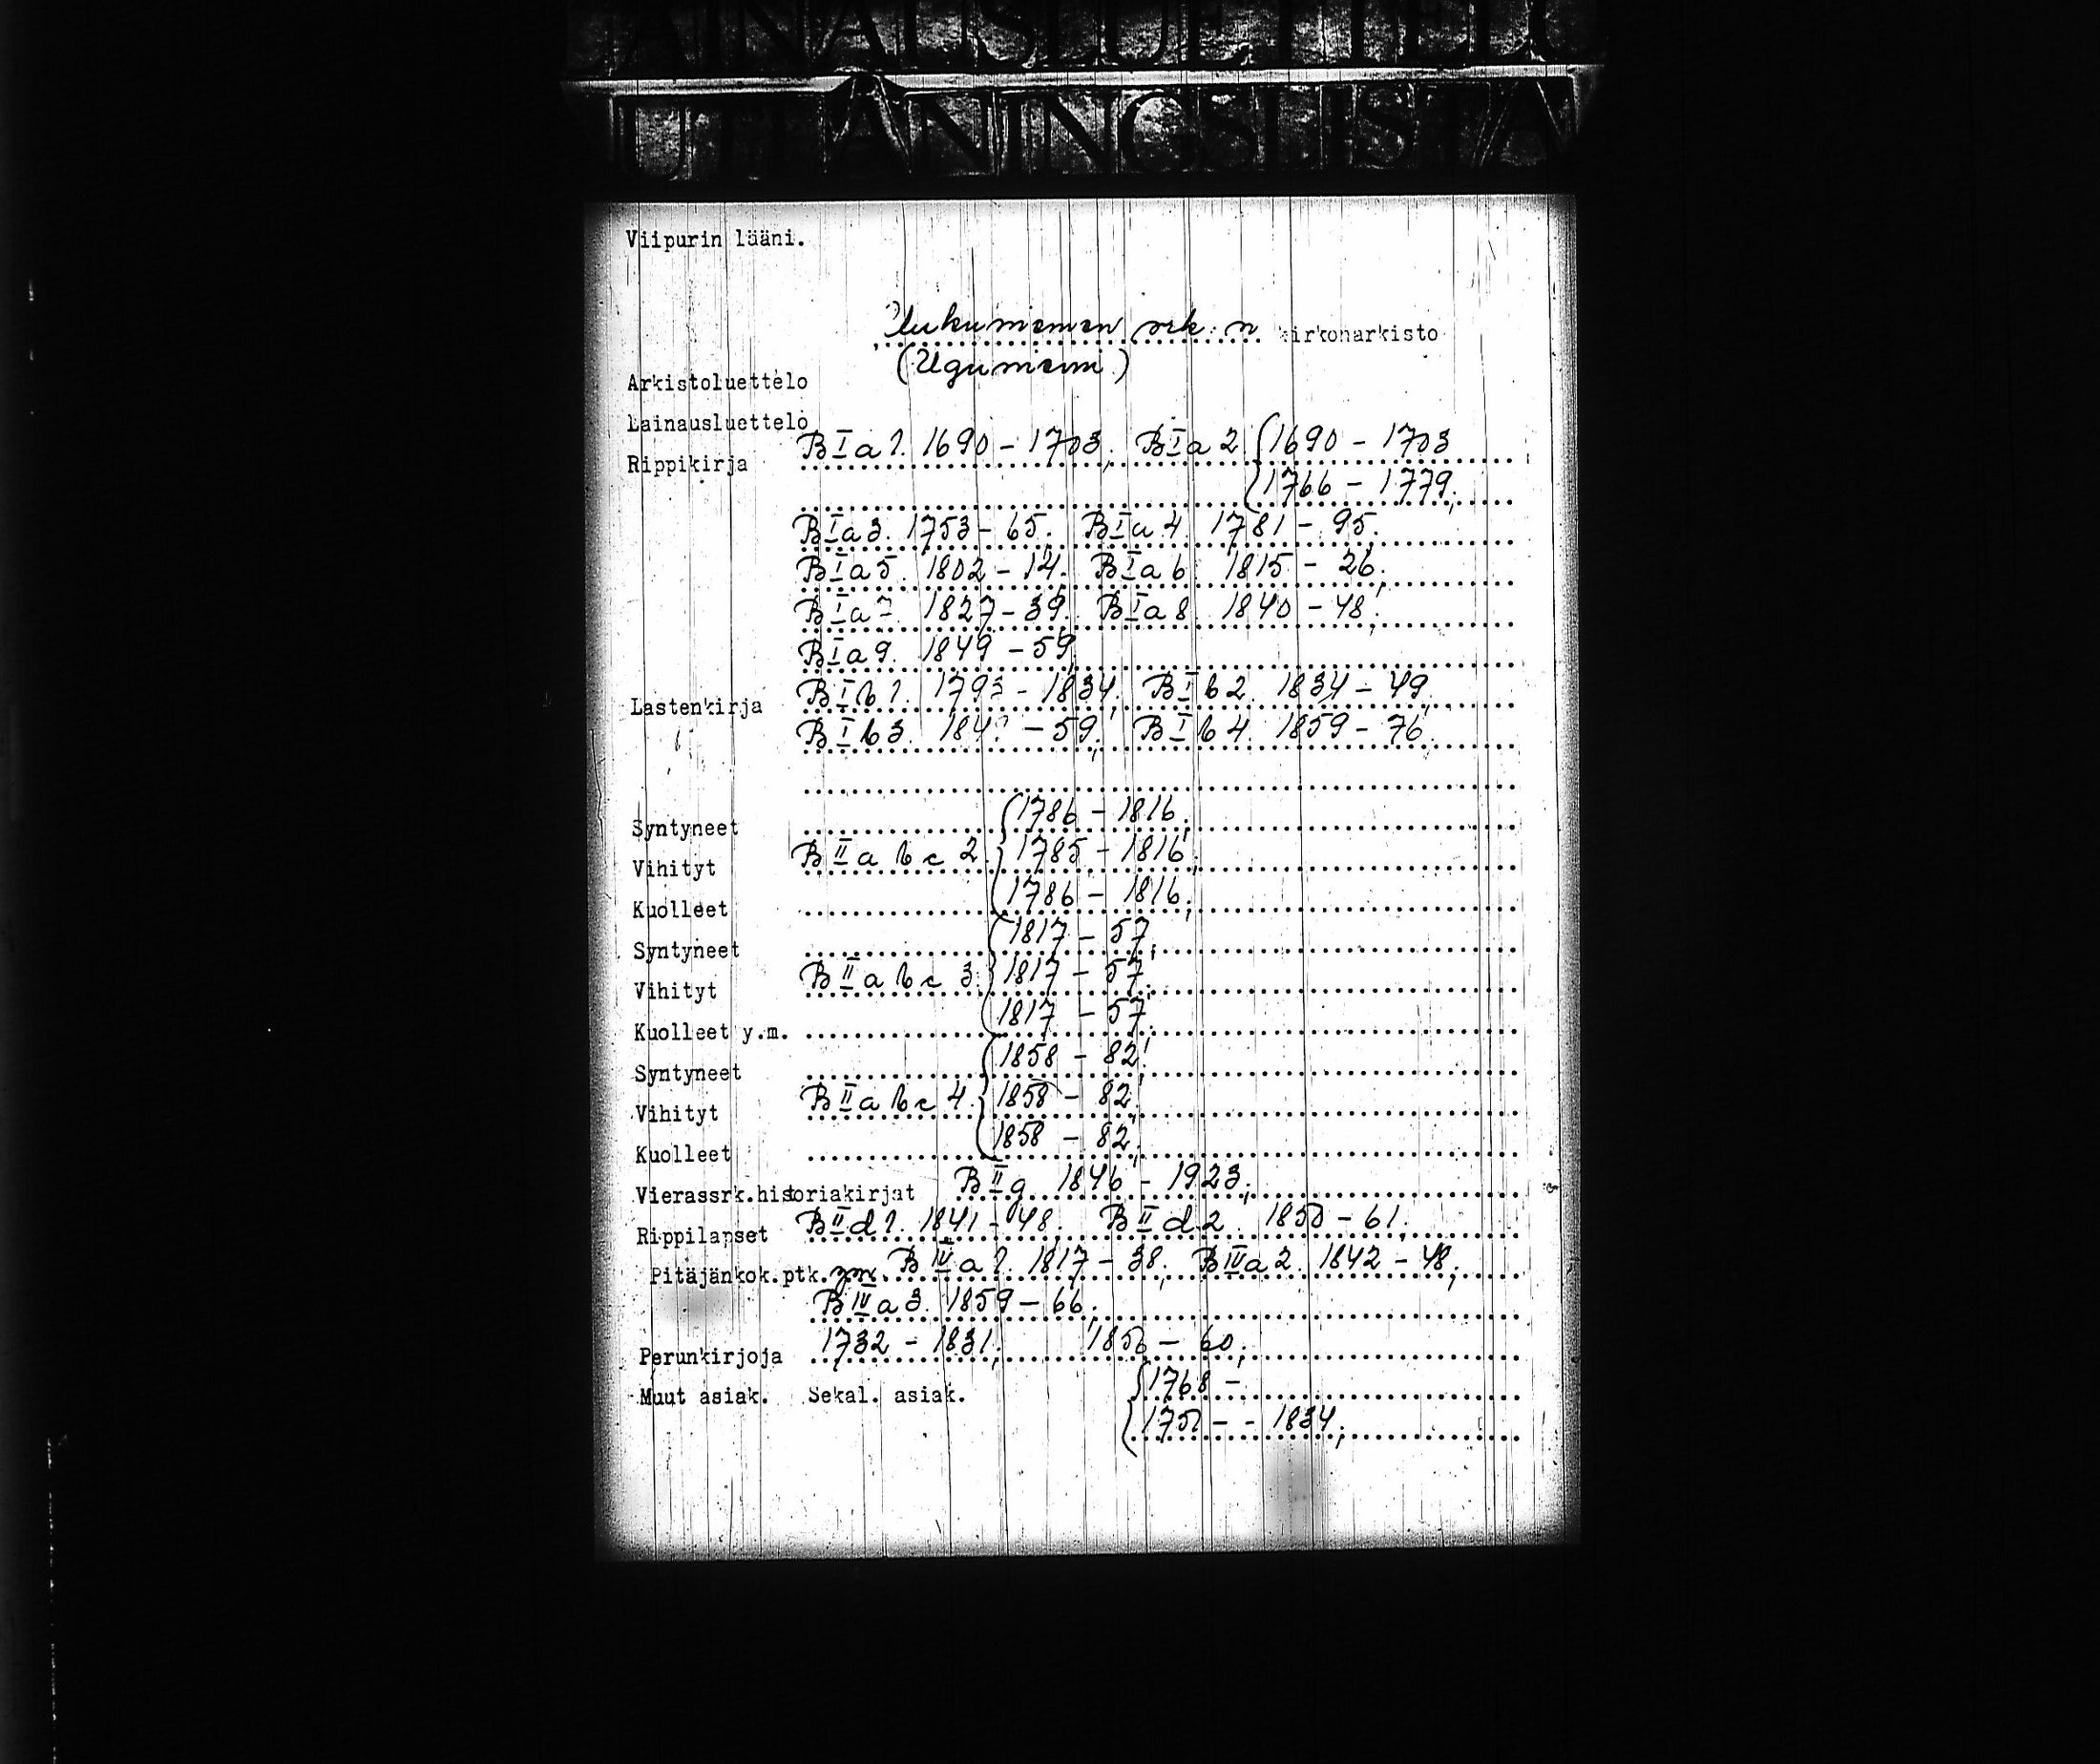 LAINAUSLUETTELO
UTLÅNINGSLISTA
Viipurin lääni.
Uukuniemen srk:n kirkonarkisto
(Uguniemi)
Arkistoluettelo
Lainausluettelo
Rippikirja B I a 1. 1690 - 1703; B I a 2 { 1690 - 1703
1766 - 1779;
B I a 3. 1753 - 65; B I a 4. 1781 - 95;
B I a 5. 1802 - 14; B I a 6. 1815 - 26;
B I a 7. 1827 - 39; B I a 8. 1840 - 48;
B I a 9. 1849 - 59;
Lastenkirja B I b 1. 1793 - 1834; B I b 2. 1834 - 49;
B I b 3. - 59; B I b 4. 1859 - 76;
Syntyneet { 1786 - 1816;
Vihityt B II a b c 2. { 1785 - 1816;
Kuolleet { 1786 - 1816;
Syntyneet { 1817 - 57;
Vihityt B II a b c 3. { 1817 - 57;
Kuolleet y.m. { 1817 - 57;
Syntyneet { 1858 - 82;
Vihityt B II a b c 4. { 1858 - 82;
Kuolleet { 1858 - 82;
Vierassrk.historiakirjat B II g 1846 - 1923;
Rippilapset B II d 1. 1841 - 48; B II d 2. 1850 - 61;
Pitäjänkok.ptk. ym. B IV a 1. 1817 - 38; B IV a 2. 1842 - 48;
B IV a 3. 1859 - 66;
Perunkirjoja 1732 - 1831; - 60;
Muut asiak. Sekal. asiak. { 1768 -
- - 1834;